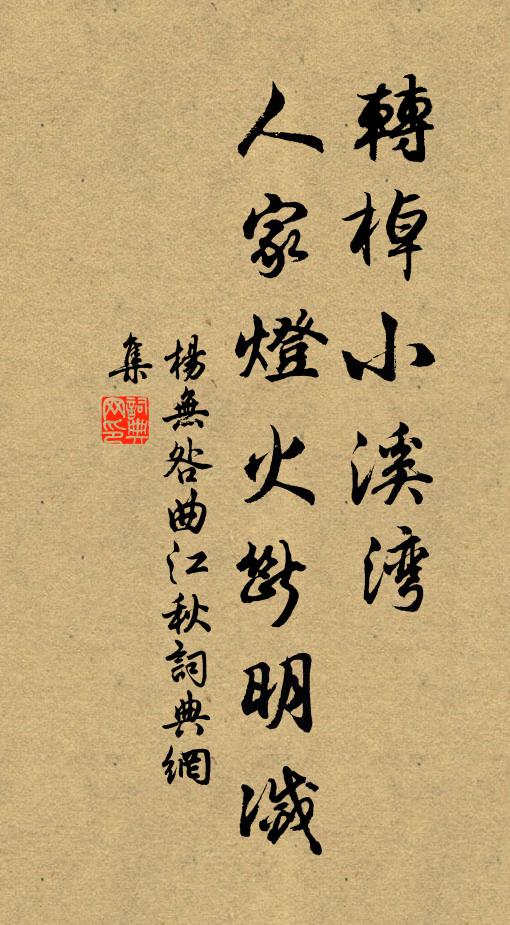 轉棹小溪灣
人家燈火斷明滅
楊無咎曲江秋詞典網
集
詞典
网印